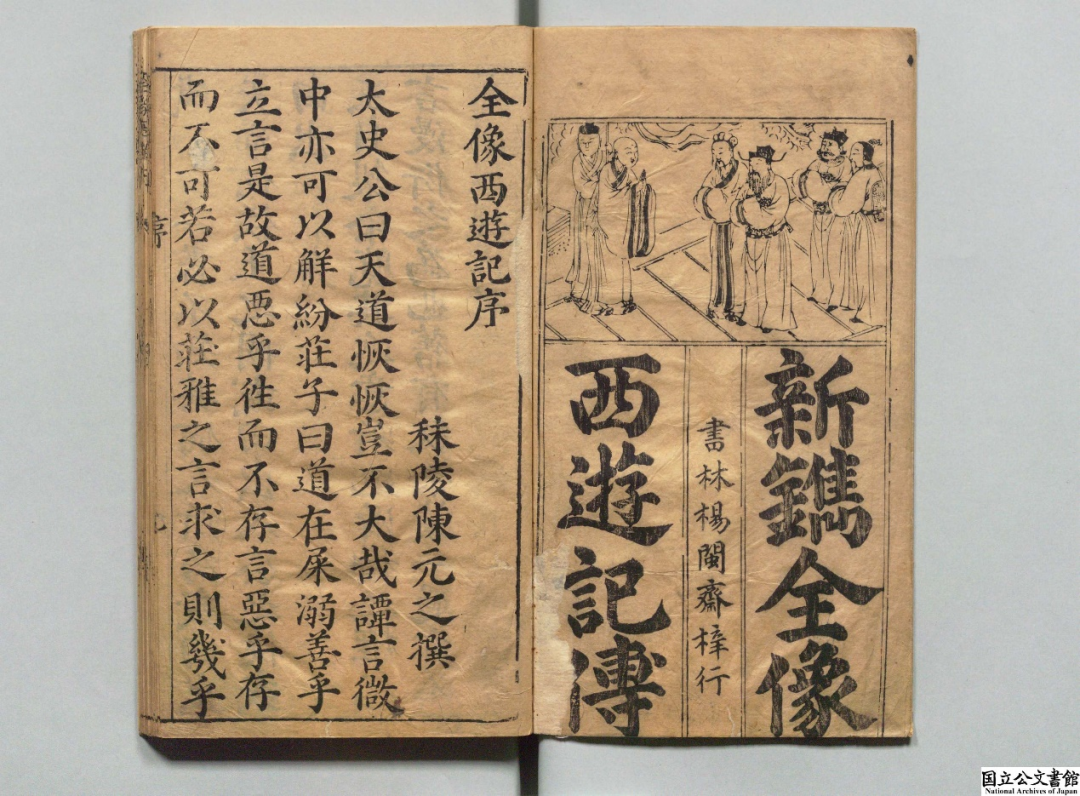 新鐫全像
書林楊閩齋梓行
西遊記傳
全像西遊記序
秣陵陳元之撰
太史公曰天道恢恢豈不大哉譚言微
中亦可以解紛荘子曰道在屎溺善乎
立言是故道悪乎徃而不存言惡乎存
而不可若必以荘雅之言求之則幾乎
序
国立公文書館
National Archives of Japan